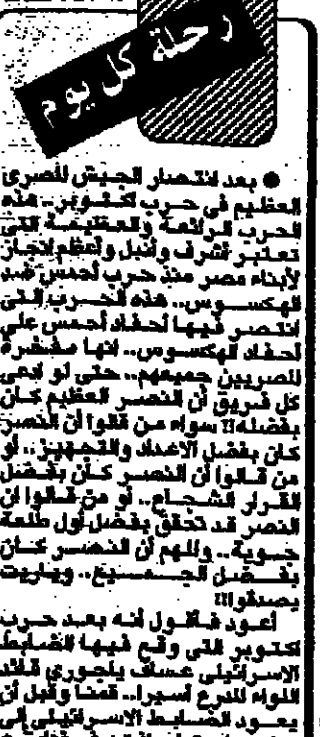 رحلة كل يوم
● بعد انتصار الجيش المصرى
العظيم فى حرب أكتوبر.. هذه
الحرب الرائعة والعظيمة التى
تعتبر أشرف وأنبل وأعظم إنجاز
لأبناء مصر منذ حرب أحمس ضد
الهكسوس.. هذه الحرب التى
انتصر فيها أحفاد أحمس على
أحفاد الهكسوس.. انها مفخرة
للمصريين جميعهم.. حتى لو ادعى
كل فريق أن النصر العظيم كان
بفضله!! سواء من قالوا أن النصر
كان بفضل الاعداد والتجهيز.. أو
من قالوا أن النصر كان بفضل
القرار الشجاع.. أو من قالوا ان
النصر قد تحقق بفضل أول طلعة
جوية.. والمهم أن النصر كان
بفضل الجميع.. وياريت
يصدقوا!!
أعود فأقول أنه بعد حرب
اكتوبر التى وقع فيها الضابط
الاسرائيلى عساف ياجورى قائد
اللواء المدرع أسيرا.. قمنا وقبل أن
يعود الضابط الاسرائيلى إلى